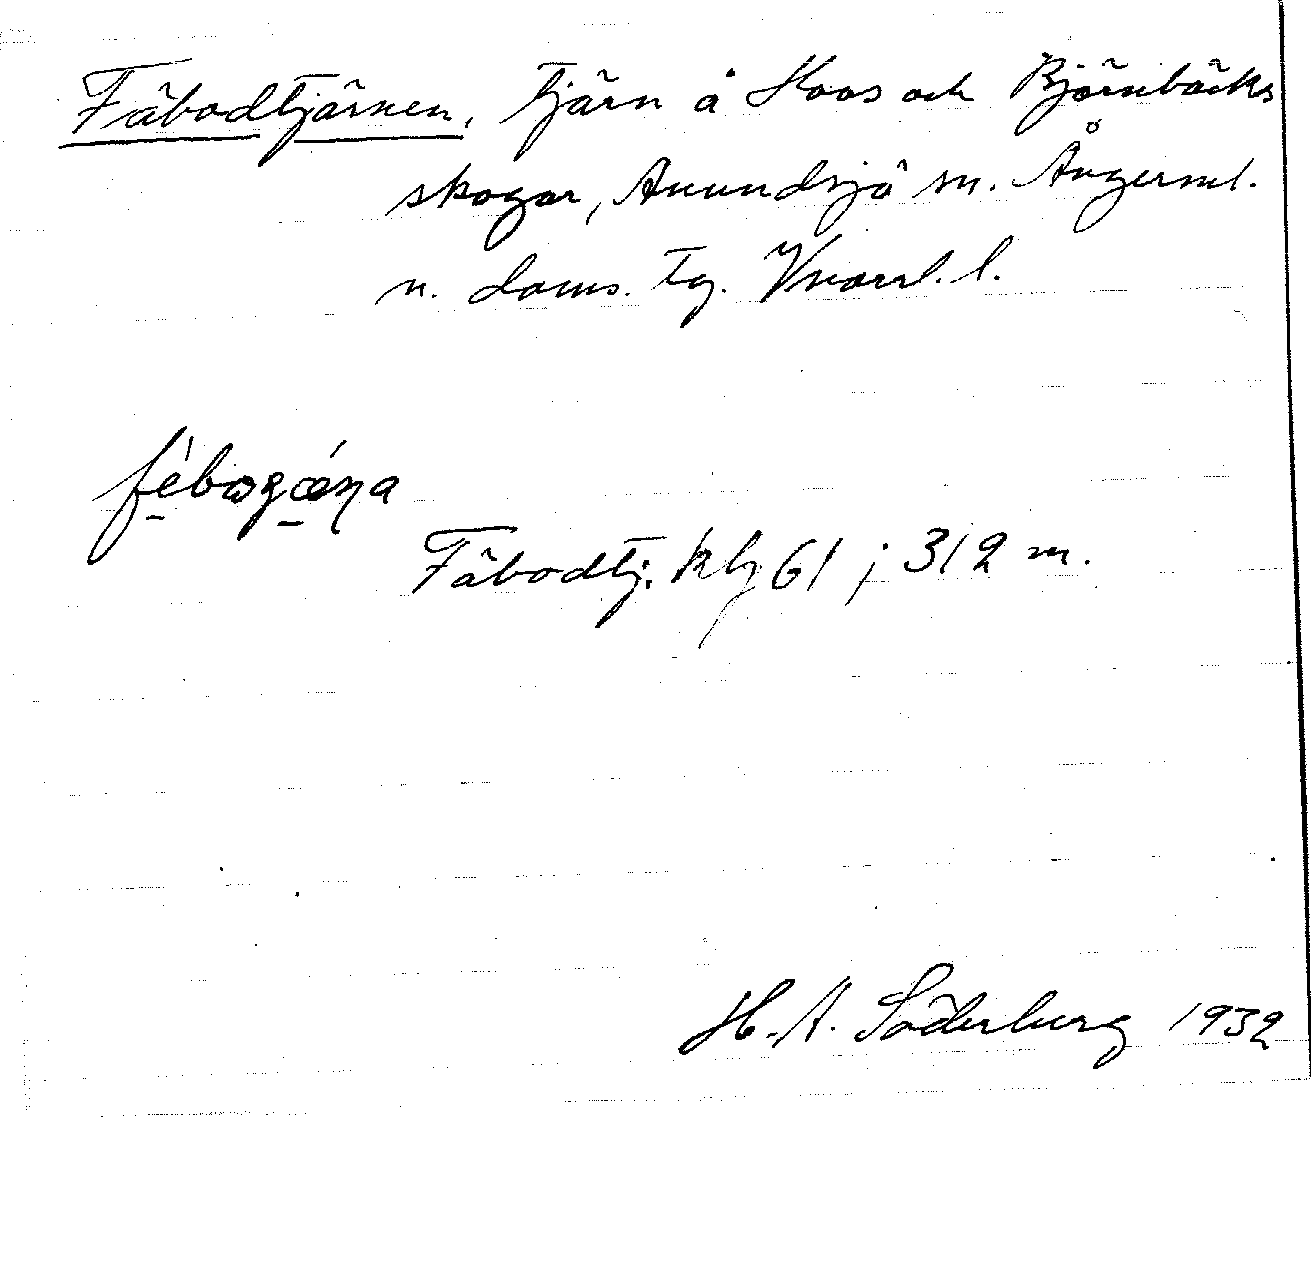 Fäbodtjärnen, Tjärn å Hoas och Björnbäcks
skogar, Anundsjö sn. Ångerml.
n. doms. tg. Vnorrl. l.
Fäbodtj. kbg 61; 312 m.
H. A. Söderberg 1932